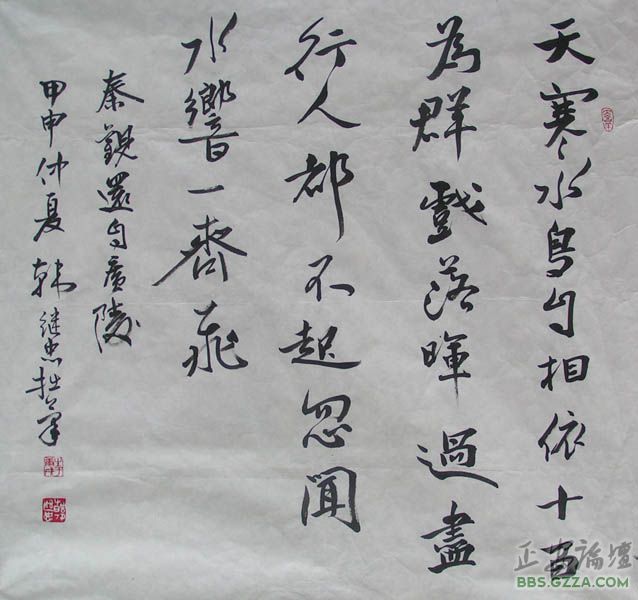 天寒水鳥自相依十百
為群戲落暉過盡
行人都不起忽聞
水響一齊飛
秦觀還自廣陵
甲申仲夏韩继忠拙筆
正安論壇
BBS.GZZA.COM